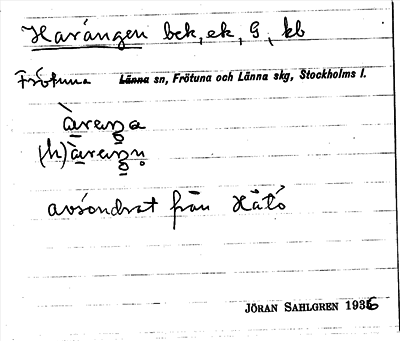 Harången bck, ek, G, kb
Frötuna Länna sn, Frötuna och Länna skg, Stockholms l.
àrena
(h)àrenn
avsöndrat från Hätö
JÖRAN SAHLGREN 1936